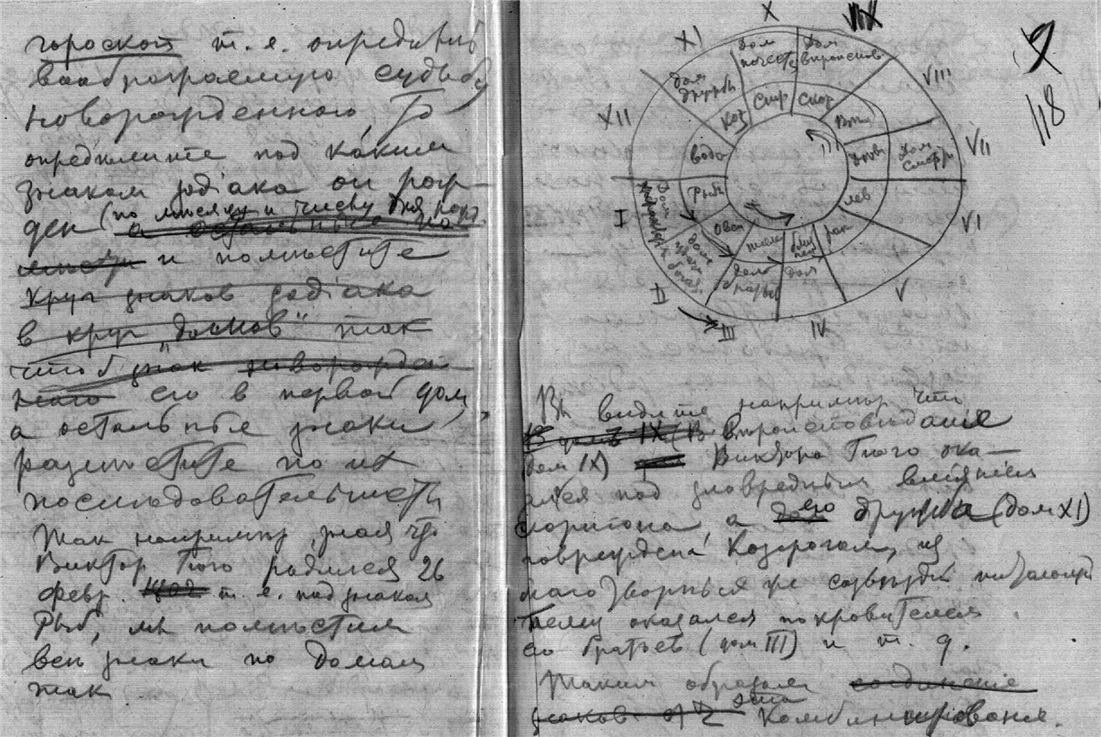 гороскоп т. е. определить
воображаемую судьбу
новорожденного, То
определите под каким
знаком зодiака он рож-
ден (по месяцу и числу дня рожд.
а остальные по
и поместите
круг знаков зодiака
в круг „домов" так
чтоб знак новорожден-
наго его в первой дом,
а остальные знаки
разместите по их
последовательности
Так например, зная что
Виктор Гюго родился 26
февр. т. е. под знаком
Рыб, мы поместим
все знаки по домам
так
9
118
X
IX
XI
VIII
XII
VII
I
VI
II
V
III
IV
дом почести
дом
дом дружбы
дом смерти
дом
дом братьев
дом
Стр
Скор
Коз
Весы
водо
Дева
Рыбы
лев
Овен
телец
близ нец
рак
Вы видите например что
В доме IX (В вероисповедание
дом IX) Виктора Гюго ока-
зался под зловредным влиянием
скорпиона а его дружба (дом XI)
повреждена Козерогом, из
благотворных же созвездий
оказался покровителем
его братьев (дом III) и т. д.
Таким образом соединенiе
знаков эта комбинирования.